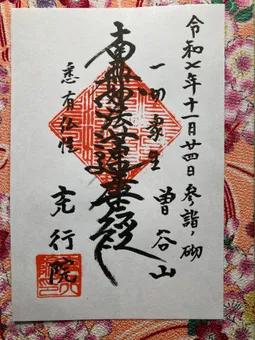 令和七年十一月廿四日 参詣ノ砌
一切衆生
曽谷山
南無妙法蓮華経
悉有仏性
充行院